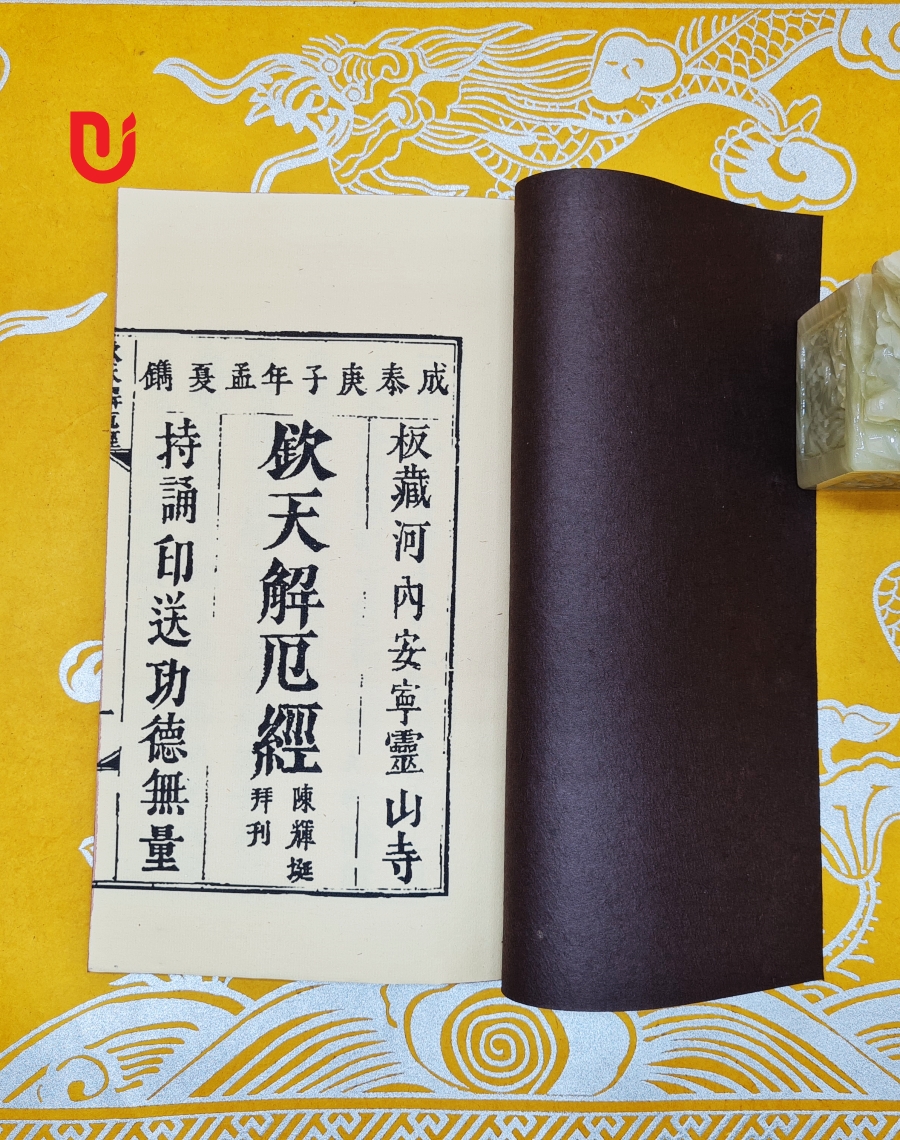 成泰庚子年孟夏鐫
板藏河內安寧靈山寺
欽天解厄經
陳輝
拜刊
持誦印送功德無量